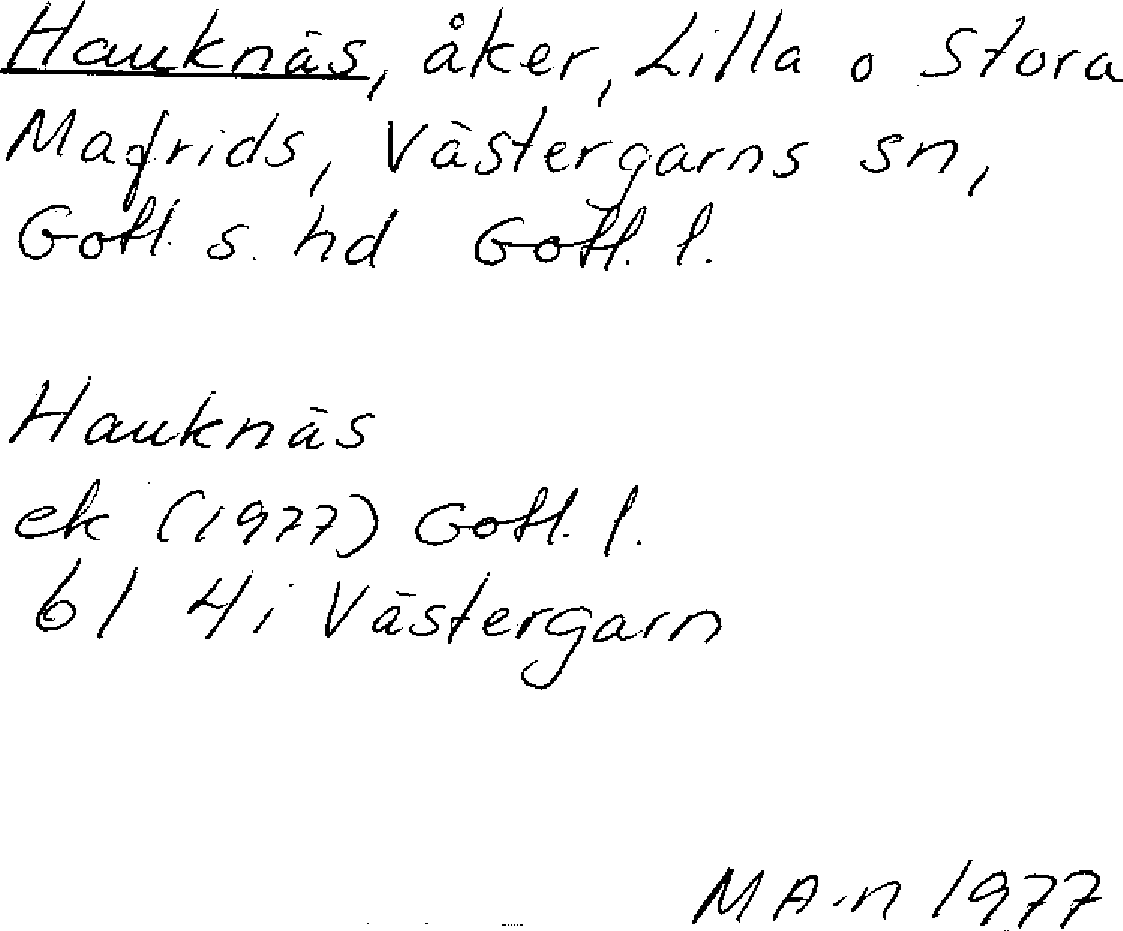 Hauknäs, åker, Lilla o Stora
Mafrids, Västergarns sn,
Gotl. s. hd Gotl. l.
Hauknäs
ek (1977) Gotl. l.
6I 4i Västergarn
MA-n 1977